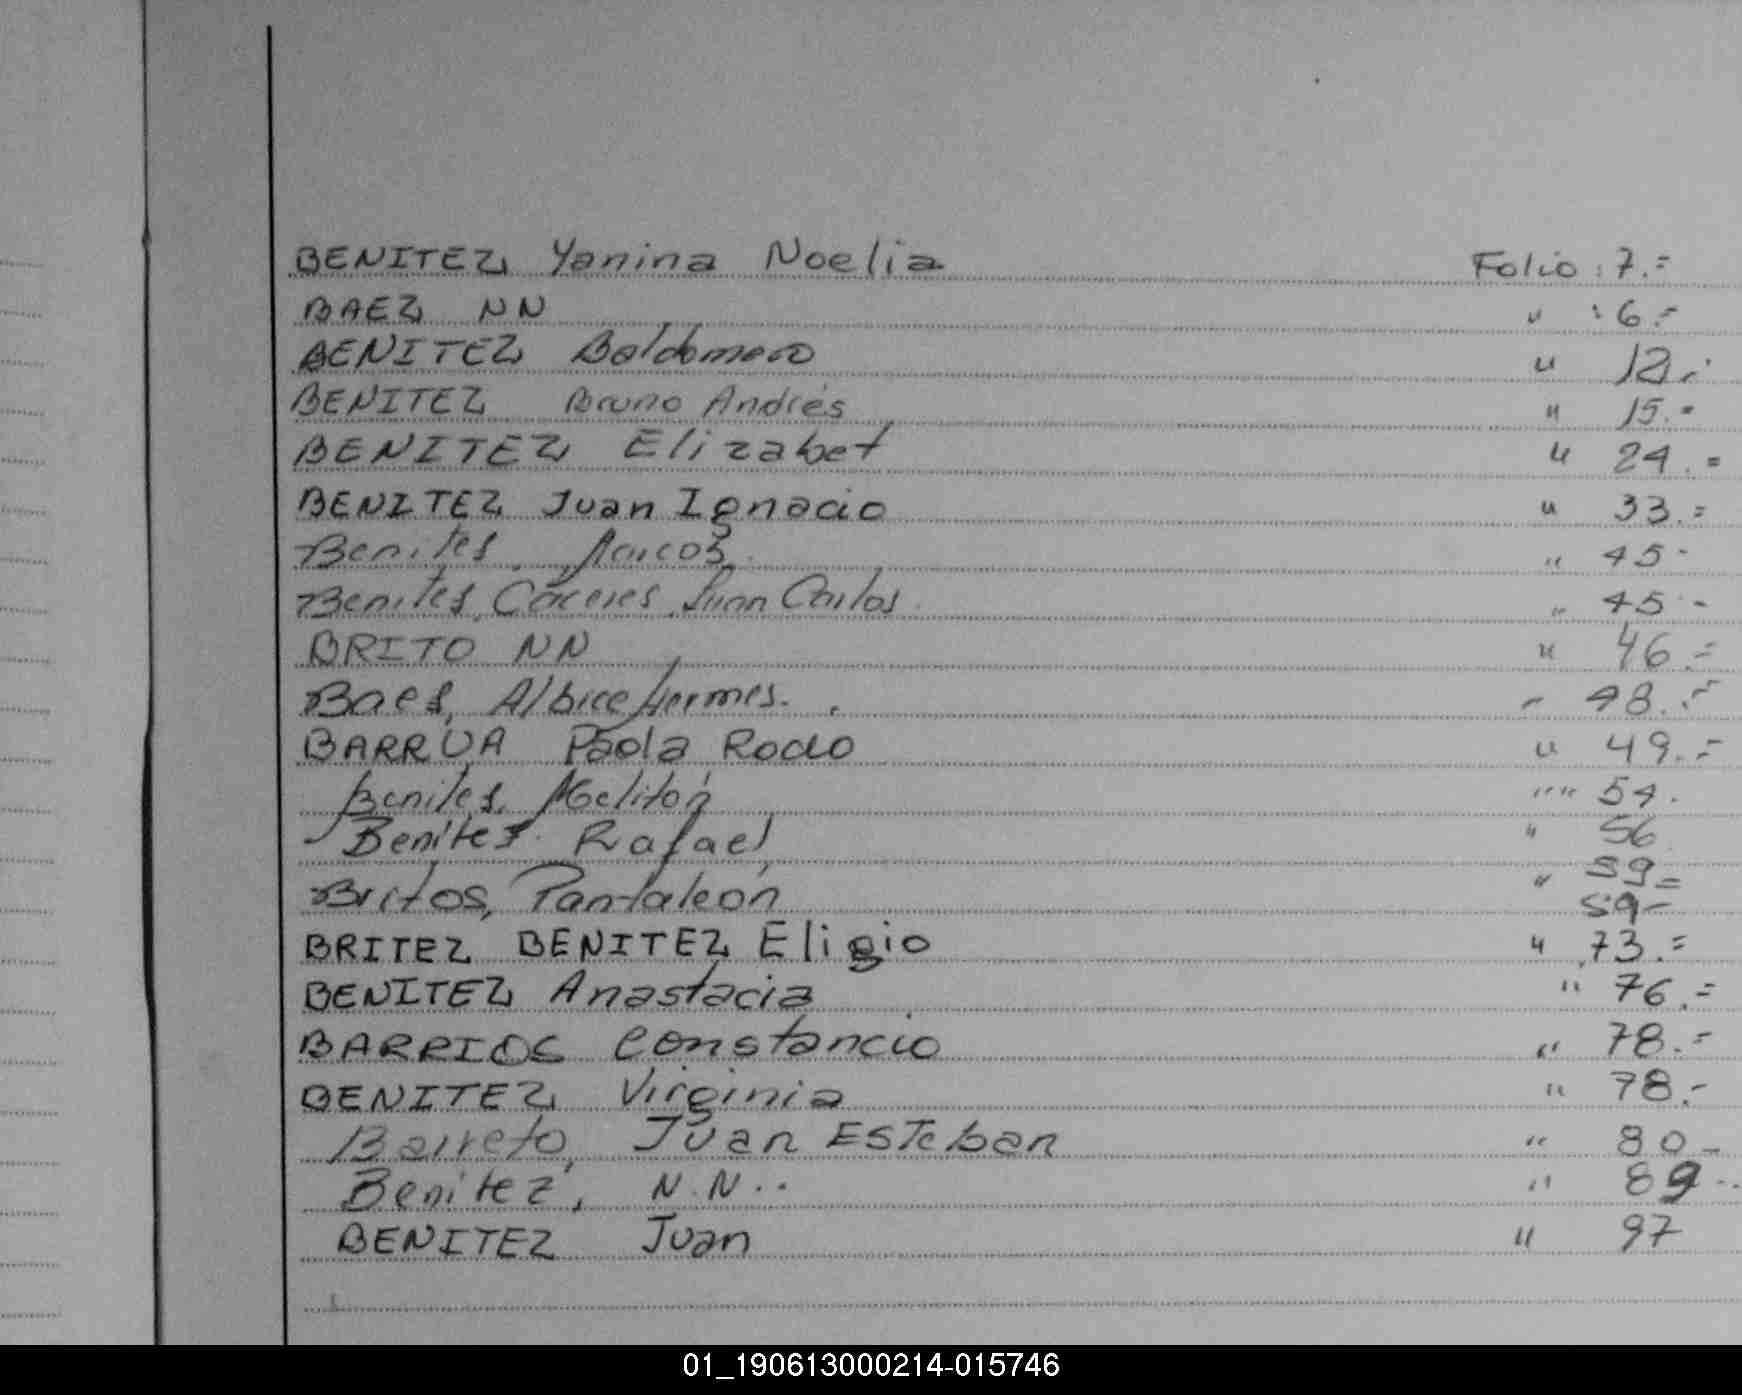 BENITEZ Yanina Noelia Folio: 7.=
BAEZ NN " : 6.=
BENITEZ Baldomero " 12.-
BENITEZ Bruno Andrés " 15.=
BENITEZ Elizabet " 24.=
BENITEZ Juan Ignacio " 33.=
Benites, Marcos. " 45-
Benites, Cáceres Juan Carlos. " 45-
BRITO NN " 46.=
Baes, Hermes. " 48.=
BARRÚA Paola Rocio " 49.=
Benites, Melitón " " 54.
Benites. Rafael " 56
Britos, Pantaleón " 59=
59-
BRITEZ BENITEZ Eligio " 73.=
BENITEZ Anastacia " 76.=
BARRIOS Constancio " 78.=
BENITEZ Virginia " 78.-
Barreto, Juan ESTeban " 80-
Benitez, N.N.. " 89-..
BENITEZ Juan " 97
01_190613000214-015746